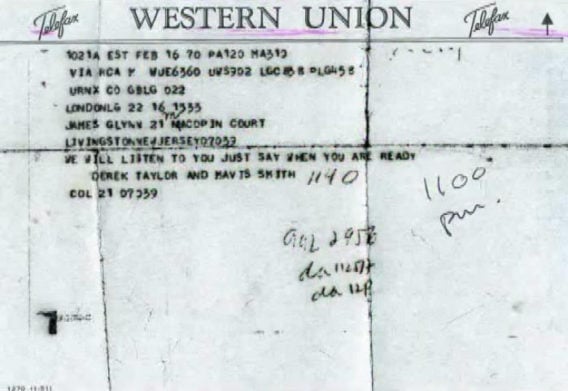 Telefax WESTERN UNION Telefax
1021A EST FEB 16 70 PA120 MA319
VIA RCA
URNX CO GBLG 022
LONDONLG 22 16 1535
JAMES GLYNN 21 MACOPIN COURT
LIVINGSTONNEWJERSEY07039
WE WILL LISTEN TO YOU JUST SAY WHEN YOU ARE READY
DEREK TAYLOR AND MAVIS SMITH 1140
COL 21 07039
1100
pm.